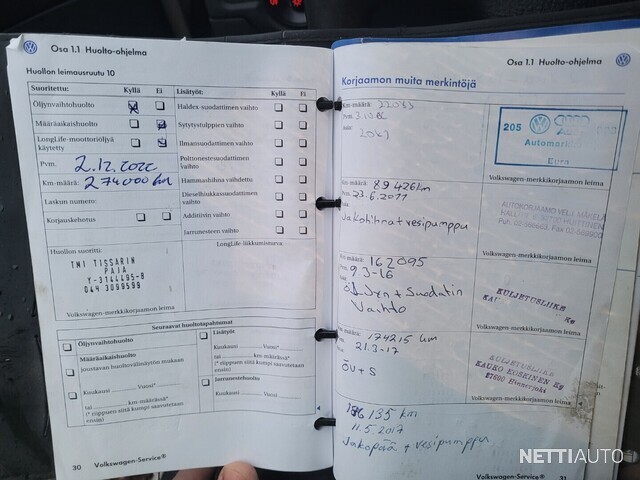 Osa 1.1 Huolto-ohjelma
Huollon leimausruutu 10
Suoritettu: Kyllä Ei
Öljynvaihtohuolto
Määräaikaishuolto
LongLife-moottoriöljyä
käytetty
Pvm. 2.12.2022
Km-määrä: 274000 km
Laskun numero:
Korjauskehotus
Huollon suoritti:
TMI TISSARIN
PAJA
Y-3144495-8
044 3099599
Volkswagen-merkkikorjaamon leima
Lisätyöt: Kyllä Ei
Haldex-suodattimen vaihto
Sytytystulppien vaihto
Ilmansuodattimen vaihto
Polttonestesuodattimen
vaihto
Hammashihna vaihdettu
Dieselhiukkassuodattimen
vaihto
Additiivin vaihto
Jarrunesteen vaihto
LongLife-liikkumisturva:
Seuraavat huoltotapahtumat
Öljynvaihtohuolto
Määräaikaishuolto
joustavan huoltovälinäytön mukaan
Kuukausi Vuosi*
tai km-määrässä*
(* riippuen siitä kumpi saavutetaan
ensin)
Lisätyöt
Kuukausi Vuosi*
tai km-määrässä*
(* riippuen siitä kumpi saavutetaan
ensin)
Jarrunestehuolto
Kuukausi Vuosi
30 Volkswagen-Service®
Osa 1.1 Huolto-ohjelma
Korjaamon muita merkintöjä
Km-määrä:
Pvm:
205
Automari
Eura
Volkswagen-merkkikorjaamon leima
Km-määrä: 89426km
Pvm: 23.6.2011
Jakohihna+vesipumppu
AUTOKORJAAMO VELJ. MÄKELÄ
Volkswagen-merkkikorjaamon leima
Km-määrä: 162095
Pvm: 9 3-16
Öljyn + Suodatin
Vaihto
KULJETUSLIIKE
Volkswagen-merkkikorjaamon leima
Km-määrä: 174215 km
21.3-17
ÖV+S
KULJETUSLIIKE
KAUKO KOSKINEN Ky
27600 Hinnerjoki
Volkswagen-merkkikorjaamon leima
186135 km
11.5 2017
Jakopää + vesipumppu
Volkswagen-Service® 31
NETTIAUTO